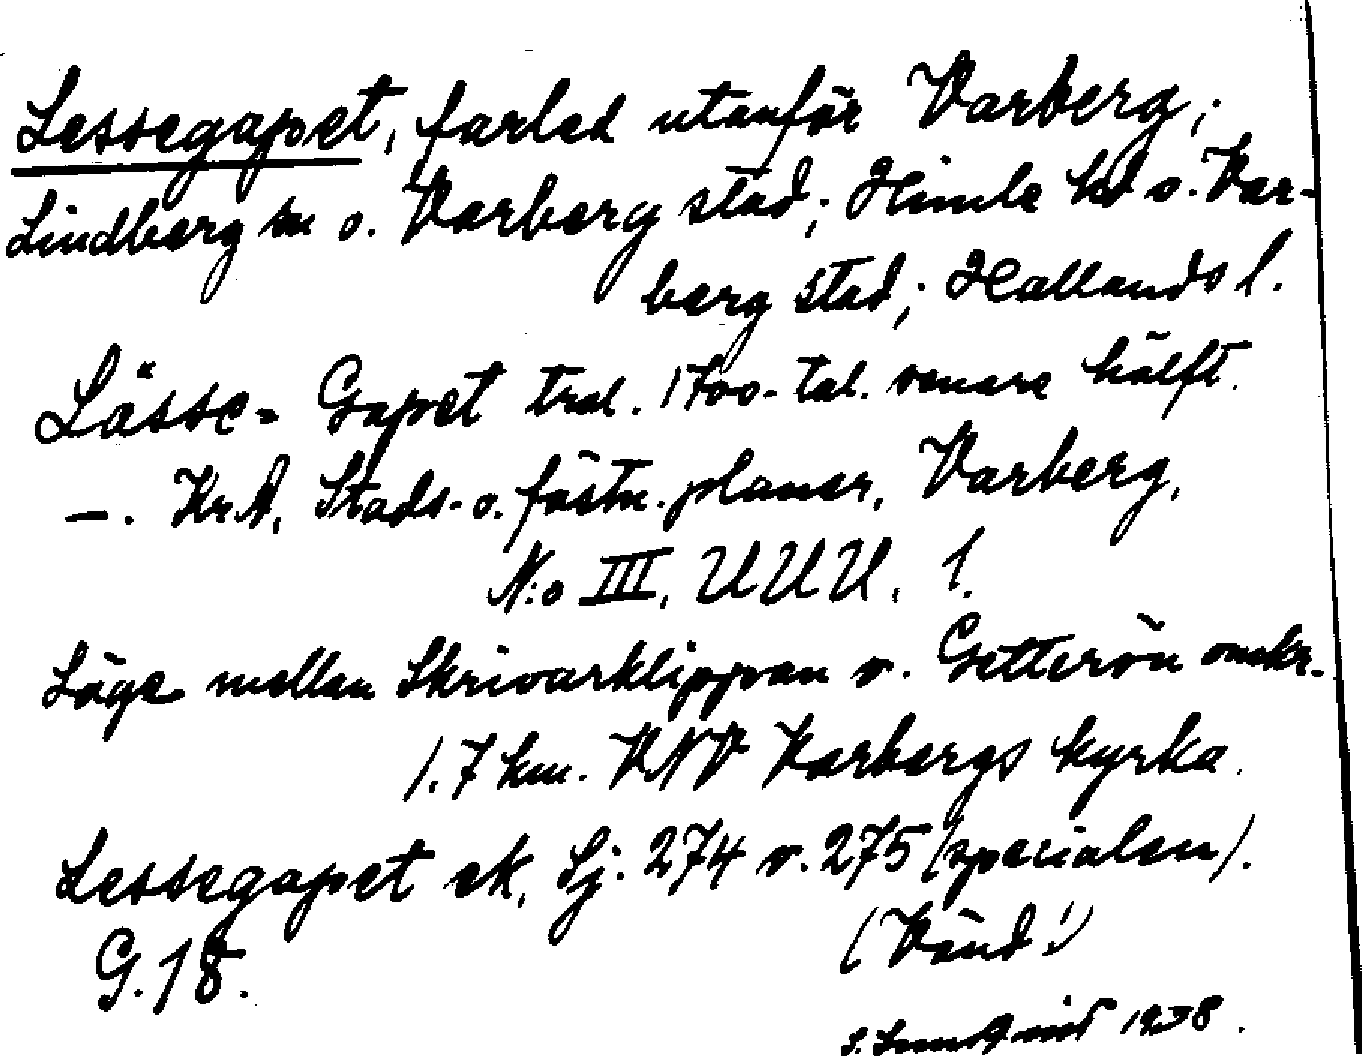 Lessegapet, farled utanför Varberg;
Lindberg sn o. Varberg stad; Himle hd o. Var-
berg stad; Hallands l.
Lässe- Gapet trol. 1700-tal. senare hälft.
—. Kr.A. Stads- o. fästn. planer, Varberg,
N:o III, UUU. 1.
Läge mellan Skrivarklippan o. Getterön omkr.
1.7 km. VNV Varbergs kyrka.
Lessegapet ek. Sj. 274 o. 275 (specialen).
G. 18. (Vänd!)
1938.